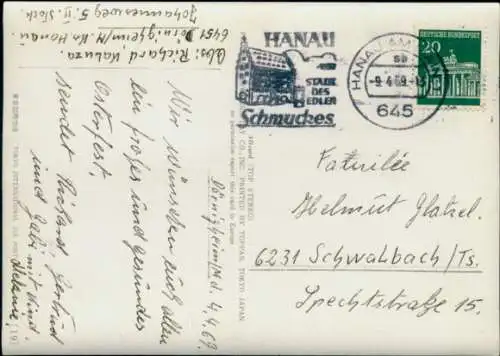 Abs: Richard Kabuza.
6451 Dörnigheim/M. Kr. Hanau
Johannesweg 5. II. Stock
HANAU
STADT DES
EDLEN
Schmuckes
HANAU AM
- 9.4.69.-
645
20
DEUTSCHE BUNDESPOST
Dörnigheim, d. 4.4.69
Wir wünschen euch allen
ein frohes und gesundes
Osterfest,
sendet Richard Gertrud
und Gabi mit Kind.
Familie
Helmut Glatzel.
6231 Schwalbach/Ts.
Spechtstraße 15.
PRINTED BY TOPPAN, TOKYO JAPAN